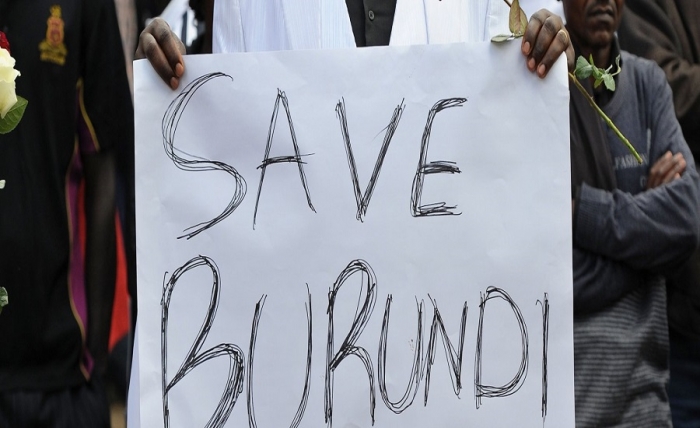 SAVE
BURUNDI